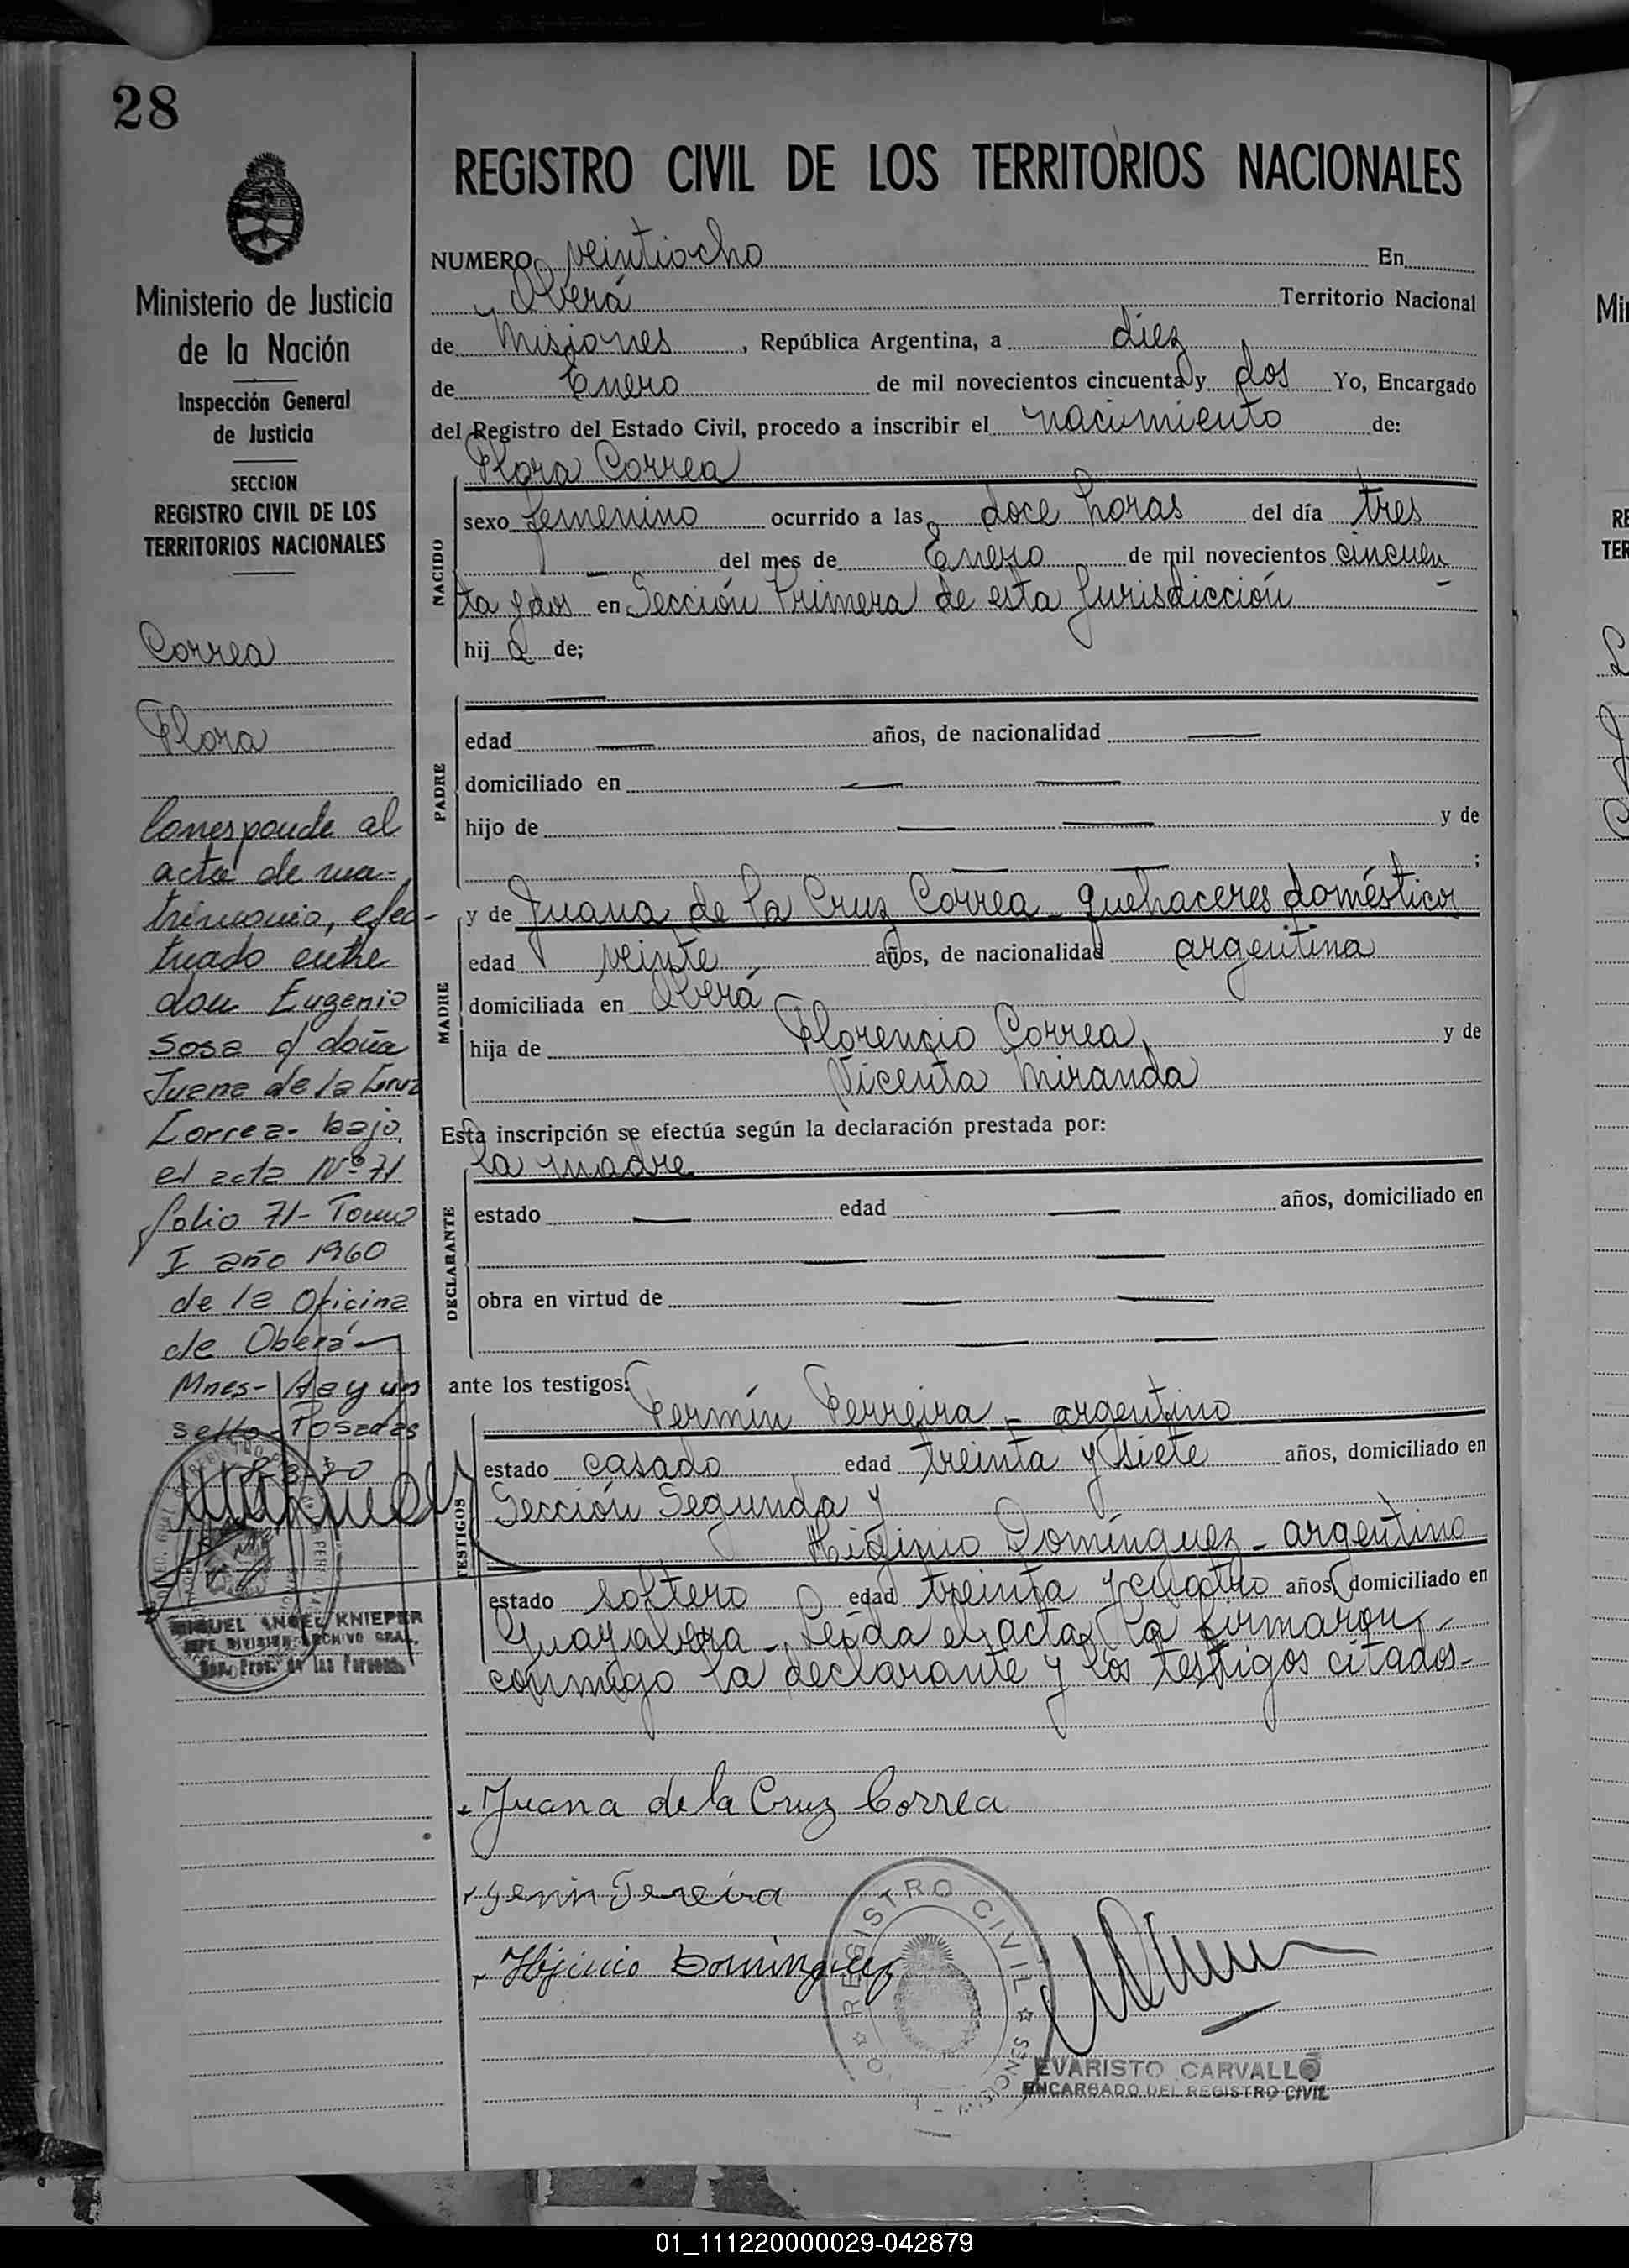 28
Ministerio de Justicia
de la Nación
Inspección General
de Justicia
SECCION
REGISTRO CIVIL DE LOS
TERRITORIOS NACIONALES
Correa
Flora
Corresponde al
acta de ma-
trimonio, efec-
tuado entre
don Eugenio
Sosa y doña
Juana de la Cruz
Correa - bajo
el acta Nº 71
folio 71 - Tomo
I año 1960
de la Oficina
de Oberá
Mnes -
sello - Posadas
MIGUEL ANGEL KNIEPER
JEFE DIVISION ARCHIVO GRAL.
Prov. de las Personas
REGISTRO CIVIL DE LOS TERRITORIOS NACIONALES
NUMERO veintiocho En
Oberá Territorio Nacional
de Misiones, República Argentina, a diez
de Enero de mil novecientos cincuenta y dos Yo, Encargado
del Registro del Estado Civil, procedo a inscribir el nacimiento de:
Flora Correa
NACIDO
sexo femenino ocurrido a las doce horas del día tres
del mes de Enero de mil novecientos cincuen
ta y dos en Sección Primera de esta Jurisdicción
hij a de;
PADRE
edad años, de nacionalidad
domiciliado en
hijo de y de
;
MADRE
y de Juana de la Cruz Correa - quehaceres domésticos
edad veinte años, de nacionalidad argentina
domiciliada en Oberá
hija de Florencio Correa y de
Vicenta Miranda
Esta inscripción se efectúa según la declaración prestada por:
la madre
DECLARANTE
estado edad años, domiciliado en
obra en virtud de
ante los testigos:
TESTIGOS
Fermín Ferreira - argentino
estado casado edad treinta y siete años, domiciliado en
Sección Segunda y
Higinio Domínguez - argentino
estado soltero edad treinta y cuatro años, domiciliado en
Guayabera - Leída el acta, la firmaron
conmigo la declarante y los testigos citados -
Juana de la Cruz Correa
Domínguez
REGISTRO CIVIL
EVARISTO CARVALLO
ENCARGADO DEL REGISTRO CIVIL
01_111220000029-042879